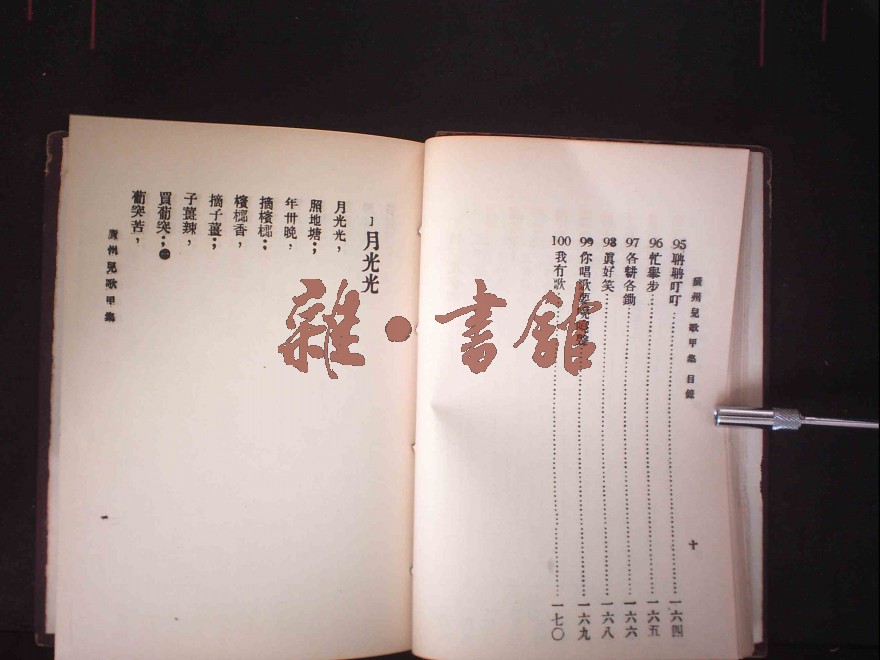 廣州兒歌甲集 目錄
十
95 聃聃叮叮 一六四
96 忙舉步 一六五
97 各耕各鋤 一六六
98 眞好笑 一六八
99 你唱歌 一六九
100 我冇歌 一七〇
雜·書館
1 月光光
月光光，
照地塘；
年卅晚，
摘檳榔；
檳榔香，
摘子薑；
子薑辣，
買葡突；㊀
葡突苦，
廣州兒歌甲集
一